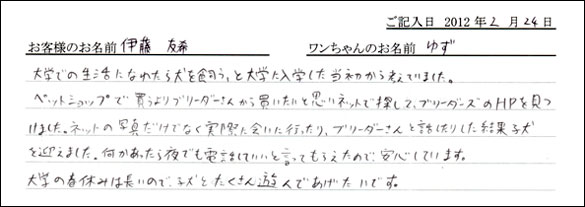 ご記入日 2012 年 2 月 24 日
お客様のお名前 伊藤 友希 ワンちゃんのお名前 ゆず
大学での生活になれたら犬を飼う。と大学に入学した当初から考えていました。
ペットショップで買うよりブリーダーさんから買いたいと思いネットで探して、ブリーダーズのHPを見つ
けました。ネットの写真だけでなく実際に会いに行ったり、ブリーダーさんと話したりした結果子犬
を迎えました。何かあったら夜でも電話していいと言ってもらえたので、安心しています。
大学の春休みは長いので、子犬とたくさん遊んであげたいです。